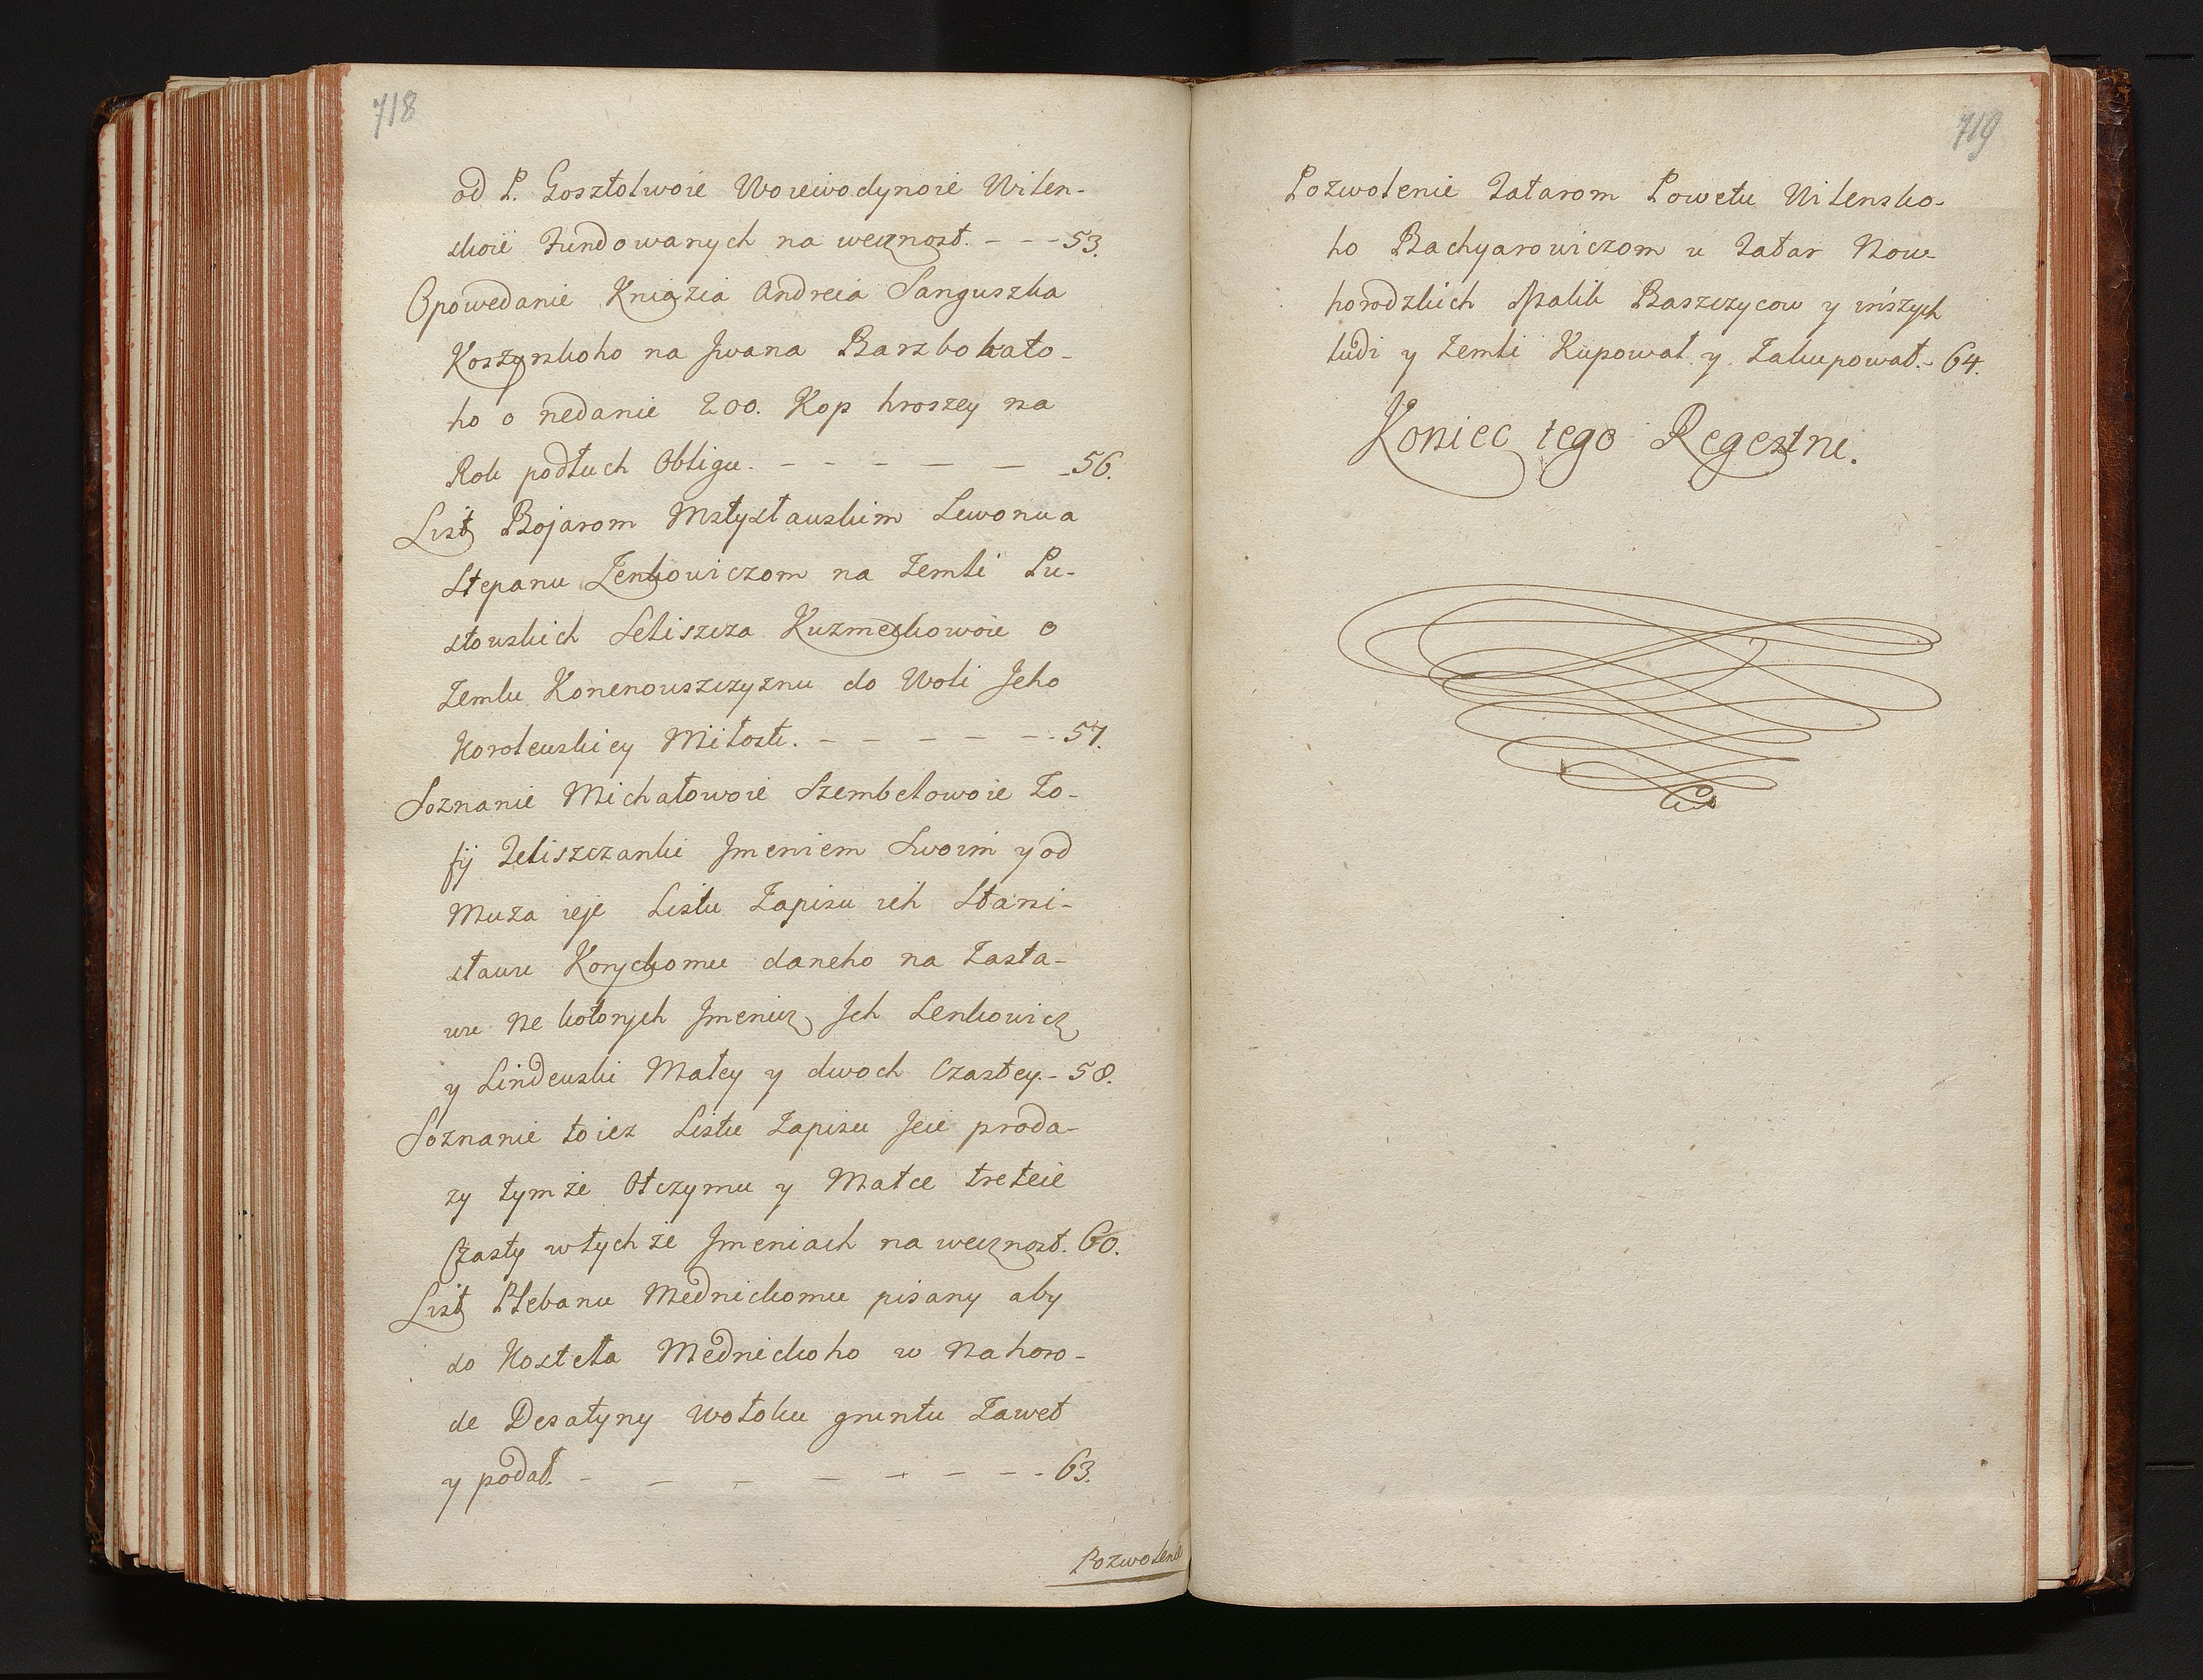 718
od P. Gosztołwoie Woiewodynoie Wilen-
skoie Fundowanych na wecznost. - - - 53.
Opowedanie Kniazia Andreia Sanguszka
Koszyrskoho na Jwana Barsbohato-
ho o nedanie 200. Kop hroszey na
Rok podłuch Obligu. - - - - - - 56.
List Bojarom Mstysłauskim Lewonu a
Stepanu Zenkowiczom na Zemli Pu-
stouskich Seliszcza Kuzmeskowoie o
Zemlu Konenouszczyznu do Woli Jeho
Korolewskiey Miłosti. - - - - - - 57.
Soznanie Michałowoie Szembelowoie Zo-
fij Teliszczanki Jmeniem Swoim y od
Muza ieje Listu Zapisu ich Stani-
sławu Koryckomu daneho na Zasta-
wu Nekotorych Jmeniey Jch Lenkowicz
y Lindewski Małey y dwoch Czastey. - 58.
Soznanie toiez Listu Zapisu Jeie proda-
zy tym że Otczymu y Matce treteie
Czasty w tych że Jmeniach na wecznost. 60.
List Plebanu Mednickomu pisany aby
do Kosteła Mednickoho w Nahoro-
de Desatyny Wołoku gruntu Zaweł
y podał. - - - - - - - - 63.
Pozwolenie
719
Pozwolenie Tatarom Powetu Wilensko-
ho Bachyarowiczom u Tatar Now-
horodzkich Malik Baszczycow y inszych
ludi y Zemli Kupowat y Zakupowat. - 64.
Koniec tego Regestru.